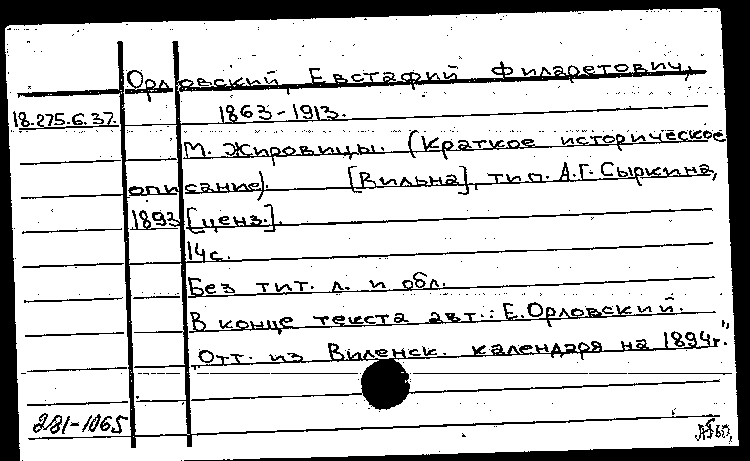 Орловский, Евстафий Филаретович,
18.275.6.37. 1863-1913.
М. Жировицы. (Краткое историческое
описание). [Вильна], тип. А.Г. Сыркина,
1893 [ценз.].
14 с.
Без тит. л. и обл.
В конце текста авт.: Е. Орловский.
Отт. из Виленск. календаря на 1894 г."
281-1065